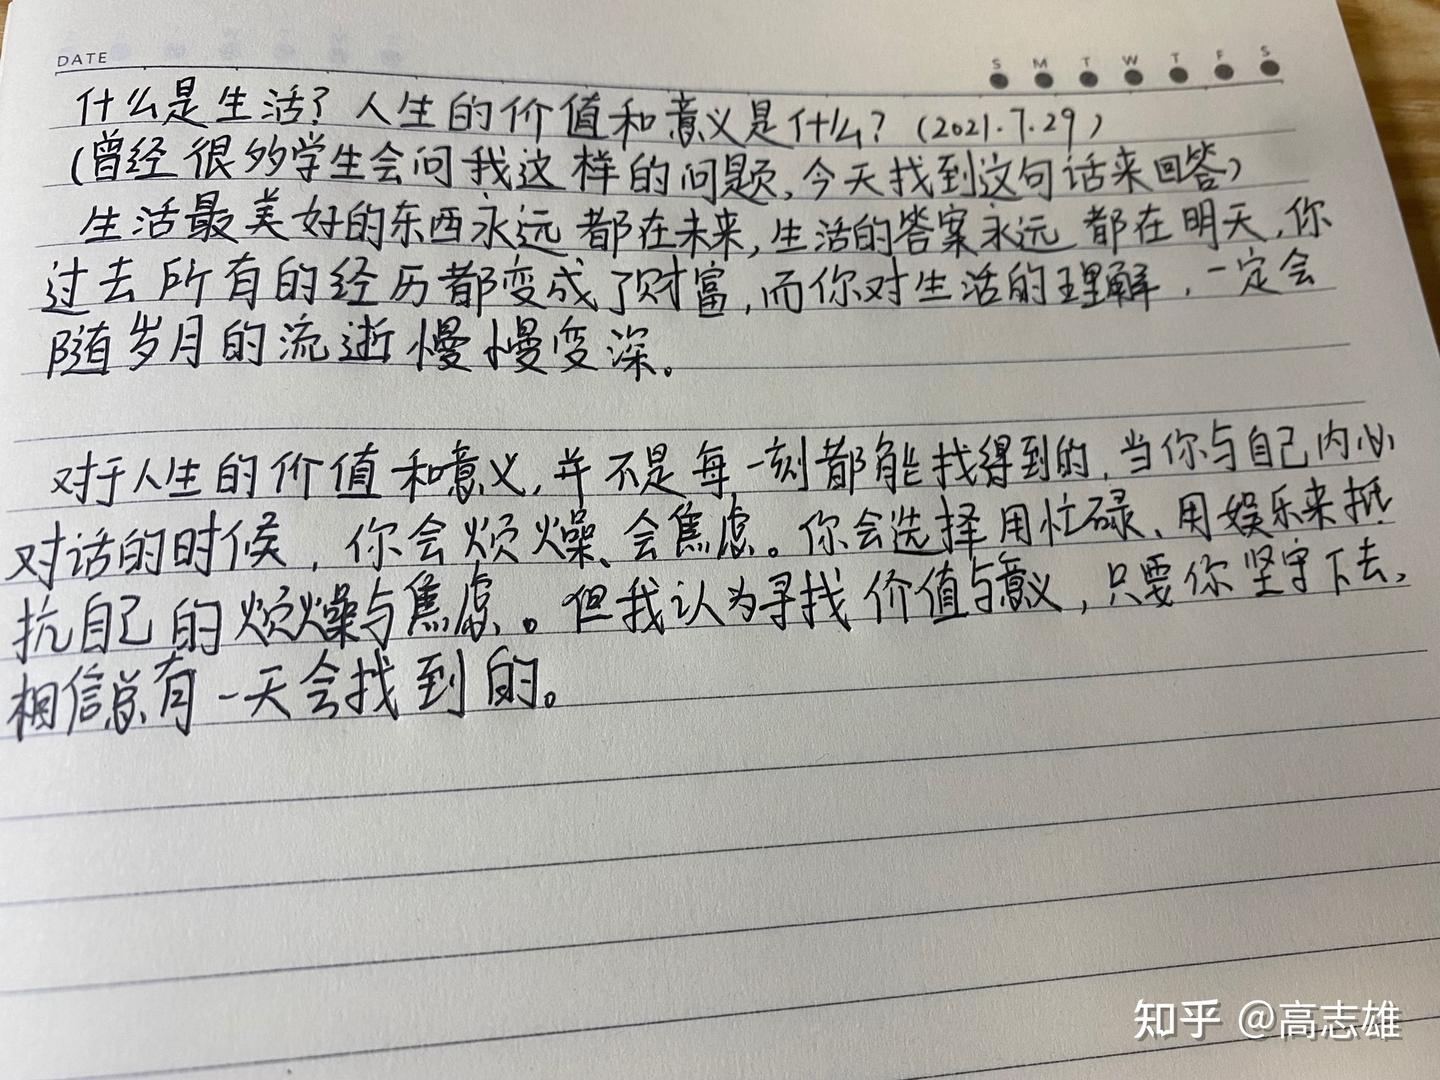 DATE
S M T W T F S
什么是生活？人生的价值和意义是什么？（2021.7.29）
（曾经很多学生会问我这样的问题，今天找到这句话来回答）
生活最美好的东西永远都在未来，生活的答案永远都在明天，你
过去所有的经历都变成了财富，而你对生活的理解，一定会
随岁月的流逝慢慢变深。
对于人生的价值和意义，并不是每一刻都能找得到的，当你与自己内心
对话的时候，你会烦燥、会焦虑。你会选择用忙碌、用娱乐来抵
抗自己的烦燥与焦虑。但我认为寻找价值与意义，只要你坚守下去，
相信总有一天会找到的。
知乎 @高志雄